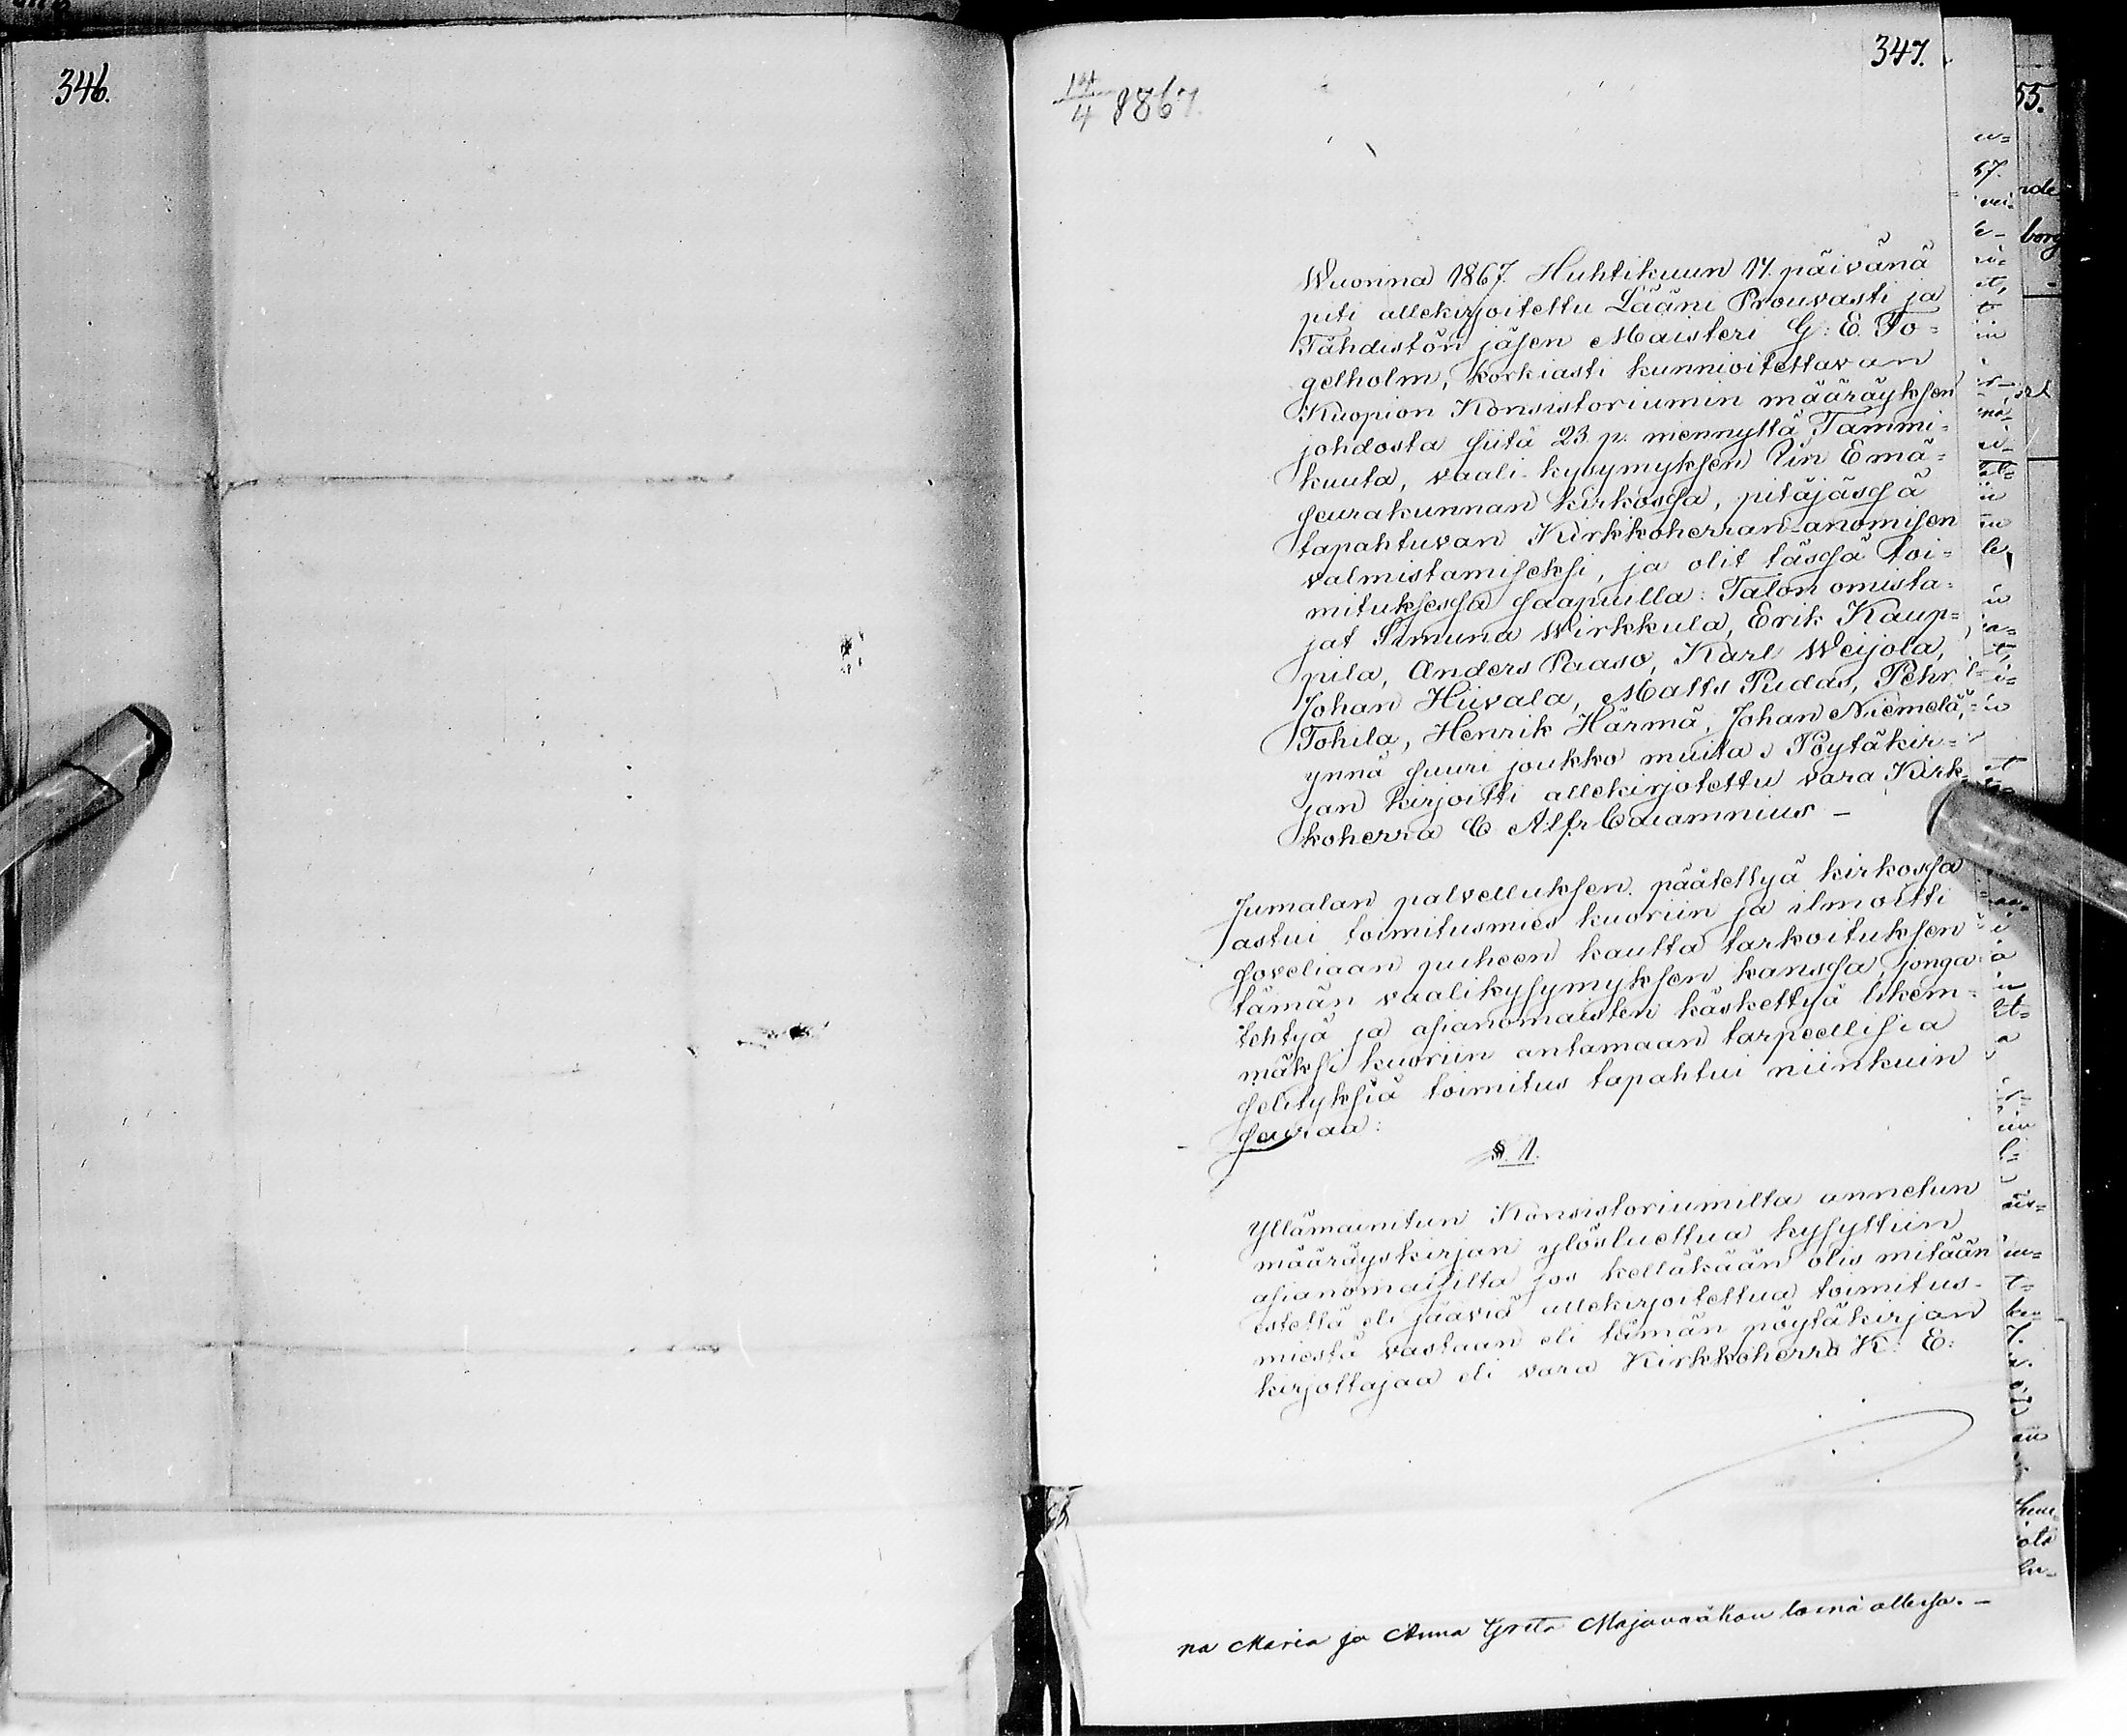 346.
347.
14/4 1867.
Wuonna 1867. Huhtikuun 14. päivänä
piti allekirjoitettu Lääni Prouvasti ja
Tähdistön jäsen Maisteri G: E. Fo=
gelholm, korkiasti kunnioitettavan
Kuopion Konsistoriumin määräyksen
johdosta siitä 23 p. mennyttä Tammi=
kuuta, vaali-kysymyksen Iin Emä=
seurakunnan kirkossa, pitäjässä
tapahtuvan Kirkkoherran-anomisen
valmistamiseksi, ja olit tässä toi=
mituksessa saapuilla: Talon omista=
jat Simuna Wirkkula, Erik Kaup=
pila, Anders Paaso, Karl Weijola,
Johan Hiivala, Matts Pudas, Pehr
Tohila, Henrik Härmä, Johan Niemelä,
ynnä suuri joukko muita. Pöytäkir=
jan kirjoitti allekirjotettu vara Kirk=
koherra C Alfr Calamnius –
Jumalan palvelluksen päätettyä kirkossa
astui toimitusmies kuoriin ja ilmoitti
soveliaan puheen kautta tarkoituksen
tämän vaalikysymyksen kanssa, jonga
tehtyä ja asianomaisten käskettyä likem=
mäksi kuoriin antamaan tarpeellisia
selityksiä toimitus tapahtui niinkuin
seuraa:
§. 1.
Yllämainitun Konsistoriumilta annetun
määräyskirjan ylösluettua kysyttiin
asianomaisilta jos kelläkään olis mitään
estettä eli jääviä allekirjoitettua toimitus-
miestä vastaan eli tämän pöytäkirjan
kirjottajaa eli vara Kirkkoherra K: E:
na Maria ja Anna Greta Majavaākan lainā allesa. –